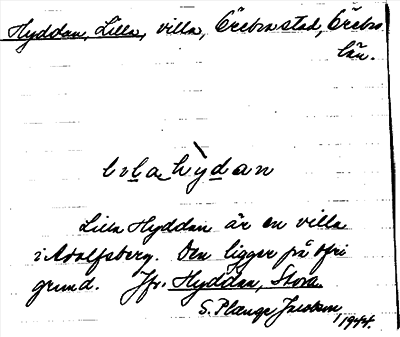 Hyddan, Lilla, villa, Örebro stad, Örebro
län.
lılahỳdan
Lilla Hyddan är en villa
i Adolfsberg. Den ligger på ofri
grund. Jfr. Hyddan, Stora.
S. Plænge Jacobson
1944.